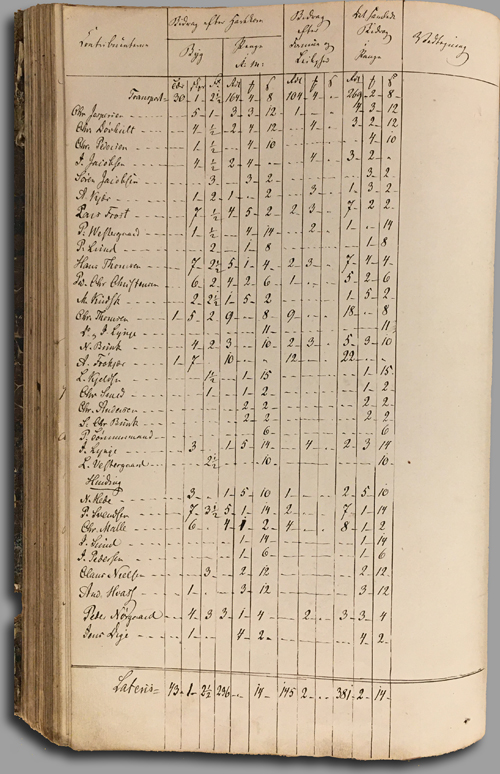 Contribuenterne Bidrag efter Hartkorn Bidrag efter Formue og Leilighed Det samlede Bidrag i Penge Anmærkning
Byg Penge R. M.
Tdr Skpr F. Rdl ƒ ß Rdl ƒ ß Rdl ƒ ß
Transport 30 1 2½ 164 4 8 104 4 - 269 2 8
Chr Jespersen 5 1 3 3 12 1 - - 4 3 12
4 ½ 2 4 12 4 - 3 2 12
Chr. Pedersen 1 ½ - 4 10 4 10
J. Jacobsen 4 ½ 2 4 - 4 - 3 2 -
Søren Jacobsen 3 - 3 2 3 2
A. Nybo 1 2 1 - 2 3 - 1 3 2
Lars Frost 7 ½ 4 5 2 2 3 - 7 2 2
P. Westergaard 1 ½ - 4 14 2 - 1 - 14
P. Lund 2 - 1 8 1 8
Hans Thomsen 7 2½ 5 1 4 2 3 - 7 4 4
Chr Christensen 6 2 4 2 6 1 - - 5 2 6
2 2½ 1 5 2 1 5 2
Chr. Thomsen 1 5 2 9 - 8 9 - - 18 - 8
J Lynge 11 11
N. Brink 4 2 3 - 10 2 3 - 5 3 10
A. Frökjær 1 7 10 - - 12 - - 22 - -
L. Kjeldsen 1½ - 1 15 1 15
Chr 1 - 1 2 1 2
Chr. Andersen 2 2 2 2
Chr Brink 2 2 2 2
P. 6 6
J. Lynge 3 - 1 5 14 4 - 2 3 14
L. Vestergaard 2½ - - 10 10
Hinding
N. Kloe 3 - 1 5 10 1 - - 2 5 10
P. Svendsen 7 3½ 5 1 14 2 - - 7 1 14
Chr. Malle 6 - 4 1 2 4 - - 8 1 2
Lund 1 14 1 14
J. Pedersen 1 6 1 6
Claus Nielsen 3 - 2 12 2 12
And. Hvass 1 - - 3 12 3 12
Peder Nörgaard 4 3 3 1 4 2 - 3 3 4
Jens 1 - - 4 2 4 2
Lateris 43 1 2½ 236 - 14 145 2 - 381 2 14